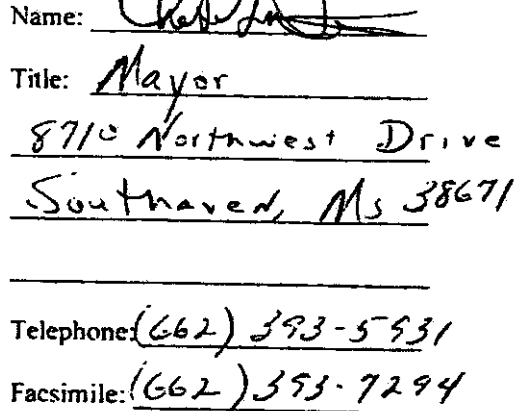 Name:
Title: Mayor
8710 Northwest Drive
Southaven, Ms 38671
Telephone: (662) 393-5931
Facsimile: (662) 393-7294